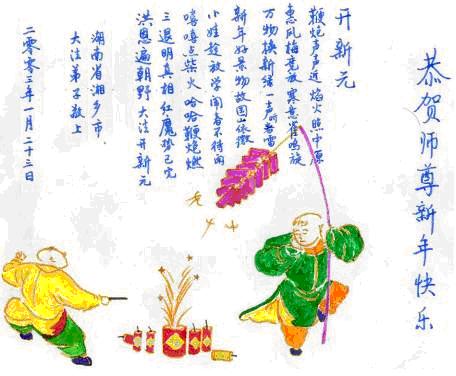 恭贺师尊新年快乐
开新元
鞭炮声声近 焰火照中原
惠风梅 放 寒意 鸣旋
万物换新绿 一声听春雷
新年好景物 故园 依微
小娃趁放学 闹春不待雨
嘻嘻点柴火 哈哈鞭炮燃
三退明真相 红魔 已完
洪恩遍朝野 大法开新元
湖南省湘乡市
大法弟子敬上
二零零 年一月二十三日